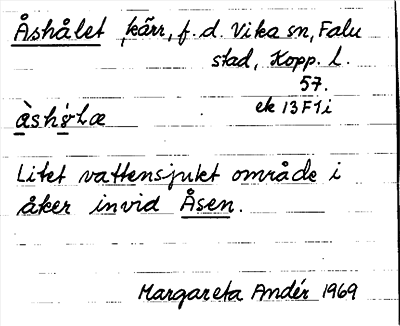 Åshålet, kärr, f.d. Vika sn, Falu
stad, Kopp. l.
57.
ek 13F1i
Litet vattensjukt område i
åker invid Åsen.
Margareta Andér 1969